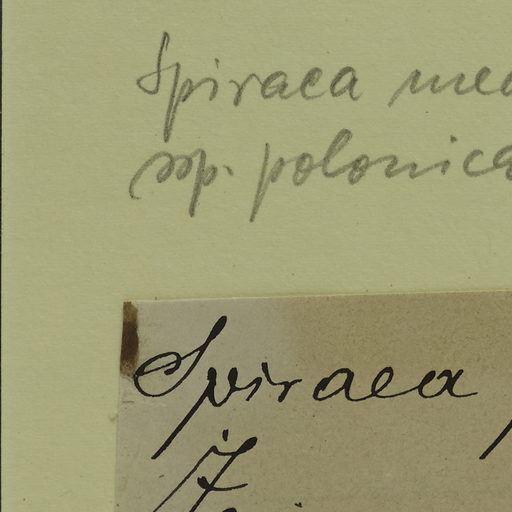 Spiraea med
ssp. polonica
Spiraea
Ż